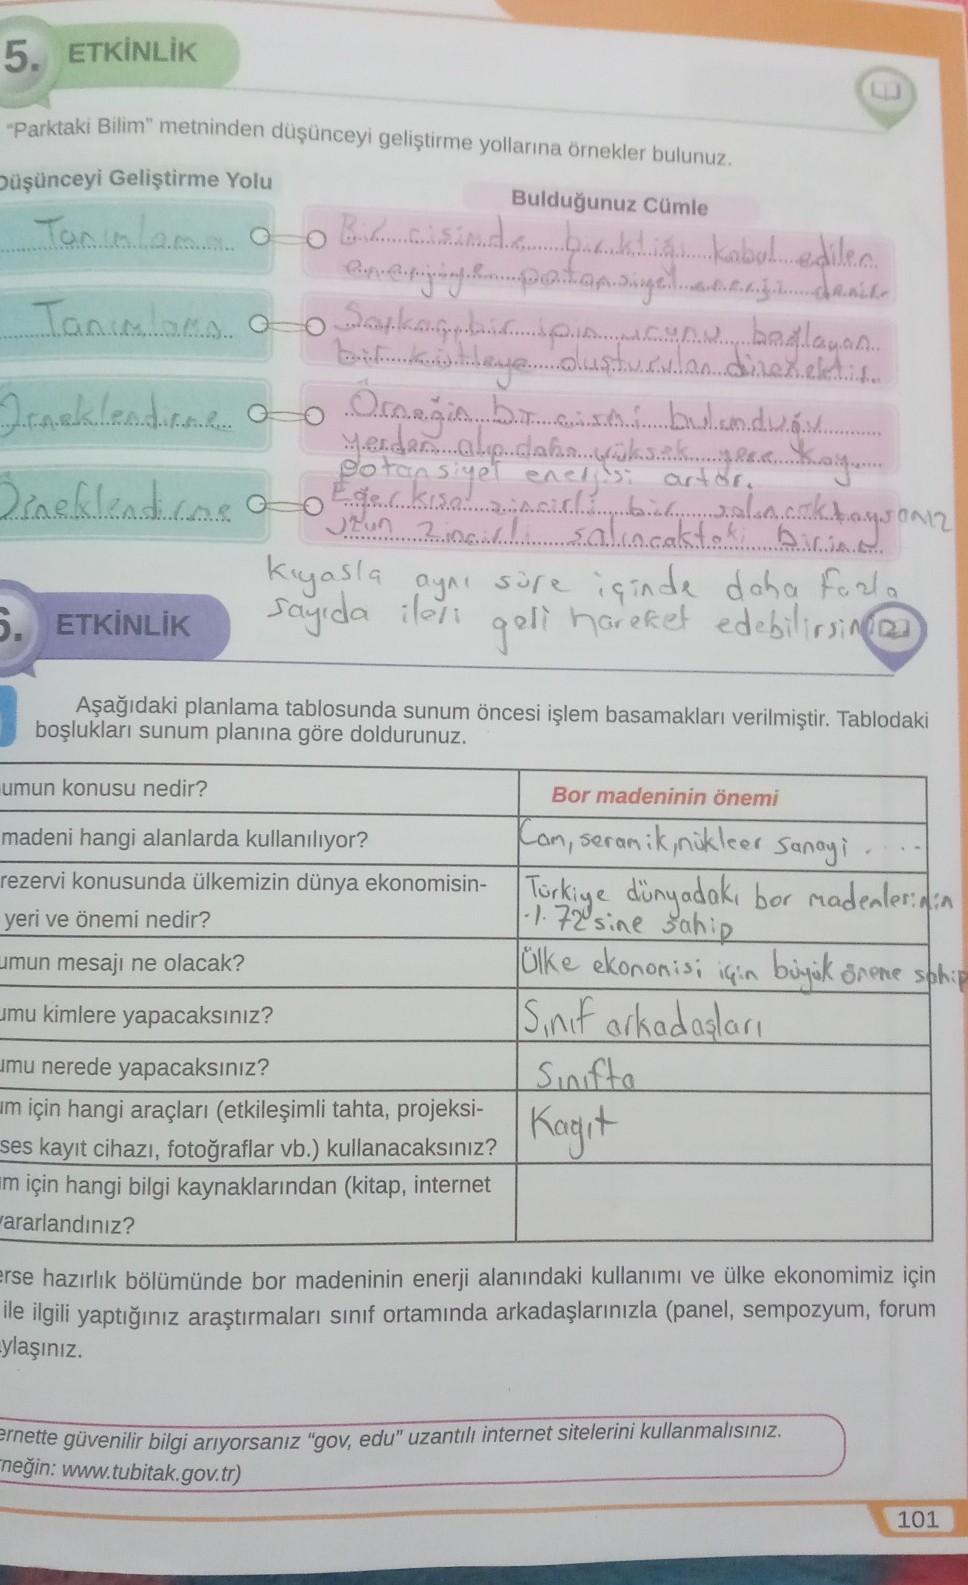 5. ETKİNLİK
"Parktaki Bilim" metninden düşünceyi geliştirme yollarına örnekler bulunuz.
Düşünceyi Geliştirme Yolu
Bulduğunuz Cümle
Tanımlama
Bir cisimde biriktiği kabul edilen
enerjiye potansiyel enerji denir.
Tanımlama
Sarkaç, bir ipin ucunu bağlayan
bir kütleye oluşturulan direnektir.
Örneklendirme
Örneğin bir cismi bulunduğu
yerden alıp daha yüksek yere koy
potansiyel enerjisi artar.
Örneklendirme
Eğer kısa zincirli bir salıncaktaysanız
uzun zincirli salıncaktaki birine
kıyasla aynı süre içinde daha fazla
sayıda ileri geli hareket edebilirsiniz
6. ETKİNLİK
Aşağıdaki planlama tablosunda sunum öncesi işlem basamakları verilmiştir. Tablodaki
boşlukları sunum planına göre doldurunuz.
umun konusu nedir?
Bor madeninin önemi
madeni hangi alanlarda kullanılıyor?
Cam, seramik, nükleer sanayi . . . .
rezervi konusunda ülkemizin dünya ekonomisin-
yeri ve önemi nedir?
Türkiye dünyadakı bor madenlerinin
.1. 72'sine sahip
umun mesajı ne olacak?
Ülke ekonomisi için büyük öneme sahip
umu kimlere yapacaksınız?
Sınıf arkadaşları
umu nerede yapacaksınız?
Sınıfta
um için hangi araçları (etkileşimli tahta, projeksi-
ses kayıt cihazı, fotoğraflar vb.) kullanacaksınız?
Kagıt
m için hangi bilgi kaynaklarından (kitap, internet
yararlandınız?
erse hazırlık bölümünde bor madeninin enerji alanındaki kullanımı ve ülke ekonomimiz için
ile ilgili yaptığınız araştırmaları sınıf ortamında arkadaşlarınızla (panel, sempozyum, forum
aylaşınız.
ernette güvenilir bilgi arıyorsanız "gov, edu" uzantılı internet sitelerini kullanmalısınız.
rneğin: www.tubitak.gov.tr)
101